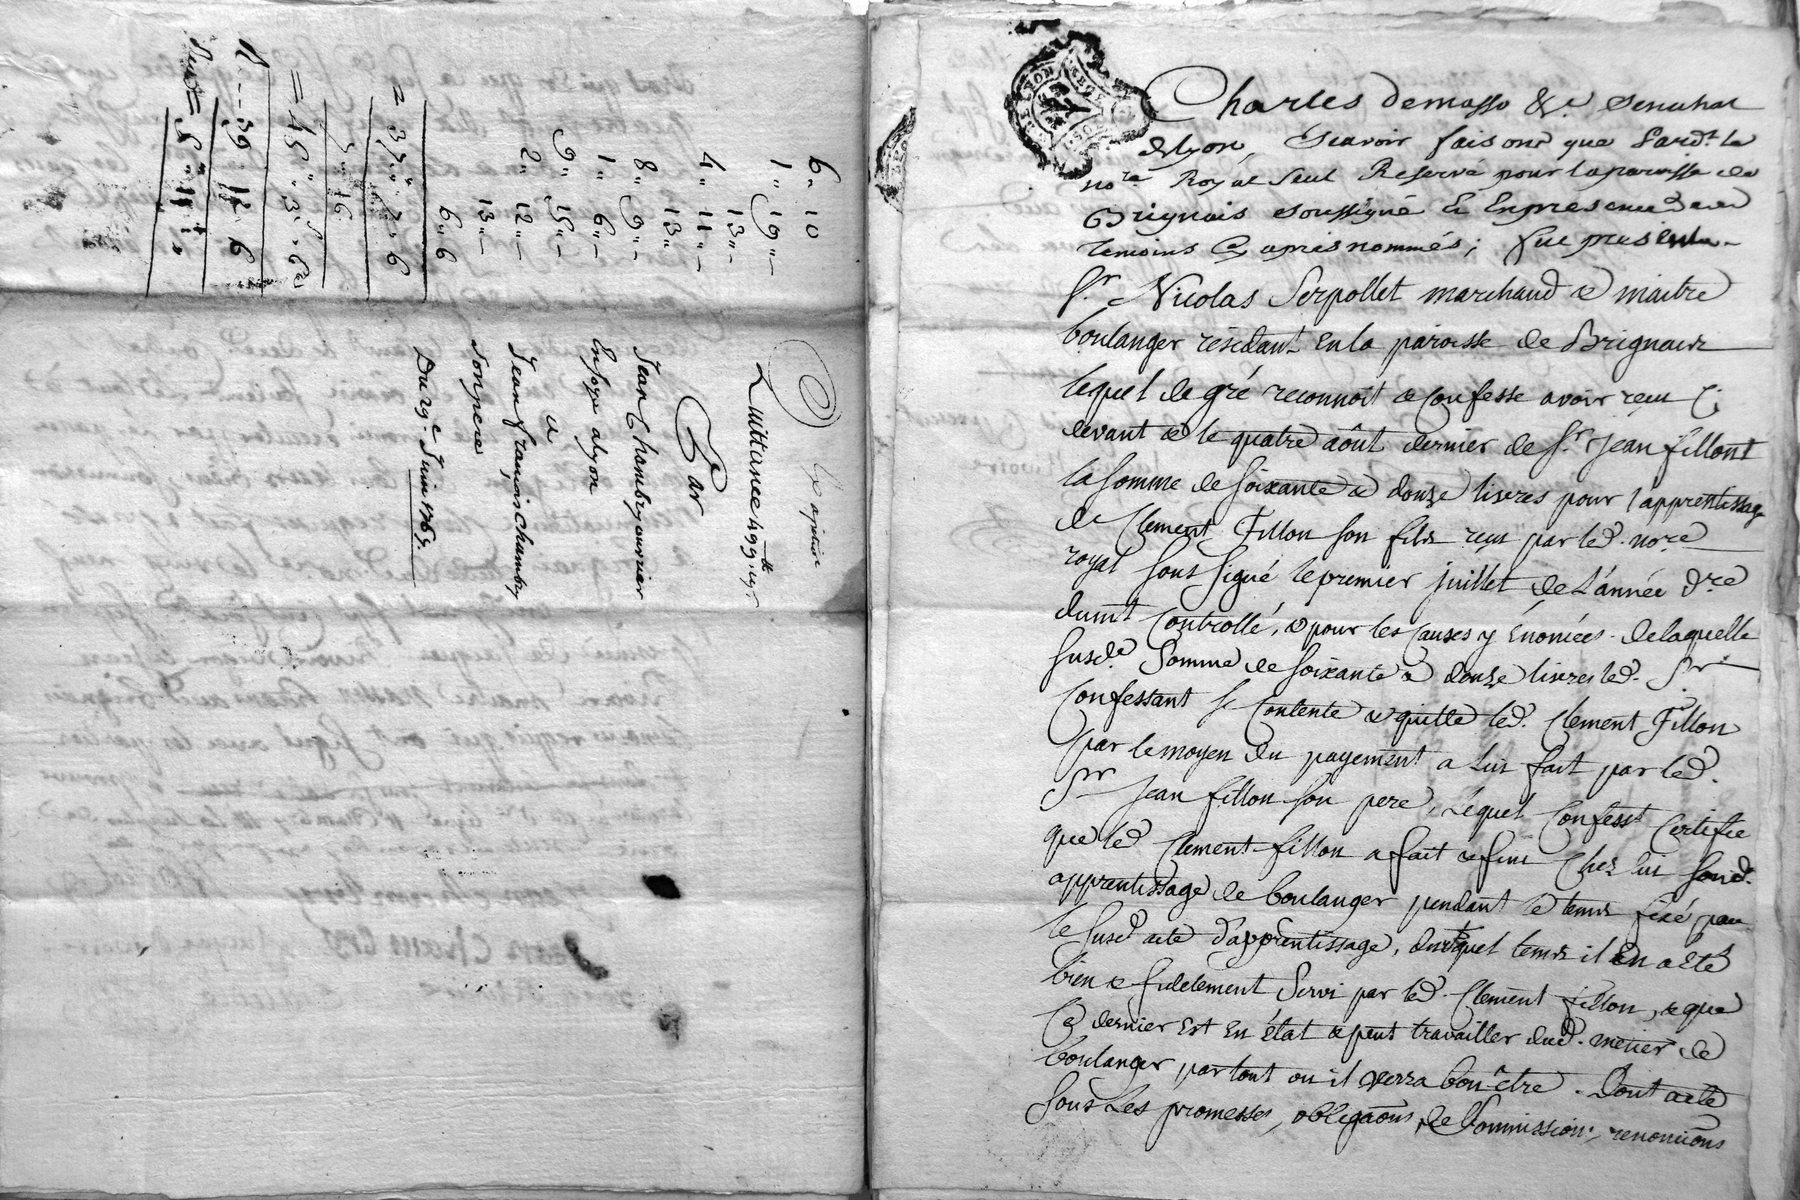 6 " 10
1 " 19 " -
13 " -
4 " 11 " -
13 " -
8 " 9 " -
1 " 6 " -
9 " 15 " -
2 " 12 " -
13 " -
6 " 6
= 37 " 7 " 6
= 45 " 3 s 6 d
R---39 " 12 " 6
Quittance 499
Par
Jean Chambry ouvrier
En soye a lyon
a
Jean francois Chambry
son pere
Du 29e Juin 1765.
Charles demasso &c. senechal
de lyon, scavoir faisons que Pardt. le
nore. Royal seul Reservé pour la paroisse de
Brignais soussigné & En presence des
temoins cy apres nommés; fut present
Sr. Nicolas Serpollet marchand & maitre
boulanger residant en la paroisse de Brignais
lequel de gré reconnoit & confesse avoir reçu cy
devant & le quatre août dernier de Sr. Jean fillont
la somme de soixante & douze livres pour l'apprentissage
de Clement Fillon son fils reçu par led. nore
royal soussigné le premier juillet de L'année dre
dumt Controllé, & pour les causes y Enoncées. de laquelle
susde. somme de soixante & douze livres led. Sr.
Confessant se contente & quitte led. Clement Fillon
par le moyen du payement a Lui fait par led.
Sr Jean fillon son pere, Lequel Confesst Certifie
que led Clement fillon a fait & fini chez lui sond.
apprentissage de boulanger pendant le tems fixé par
le susd acte d'apprentissage, duquel tems il En a eté
bien & fidelement Servi par led. Clement fillon, & que
Ce dernier Est En état & peut travailler dud. metier de
boulanger partout ou il verra bon être. Dont acte
sous Les promesses, obligaõns, de Soummission, renonciaõns